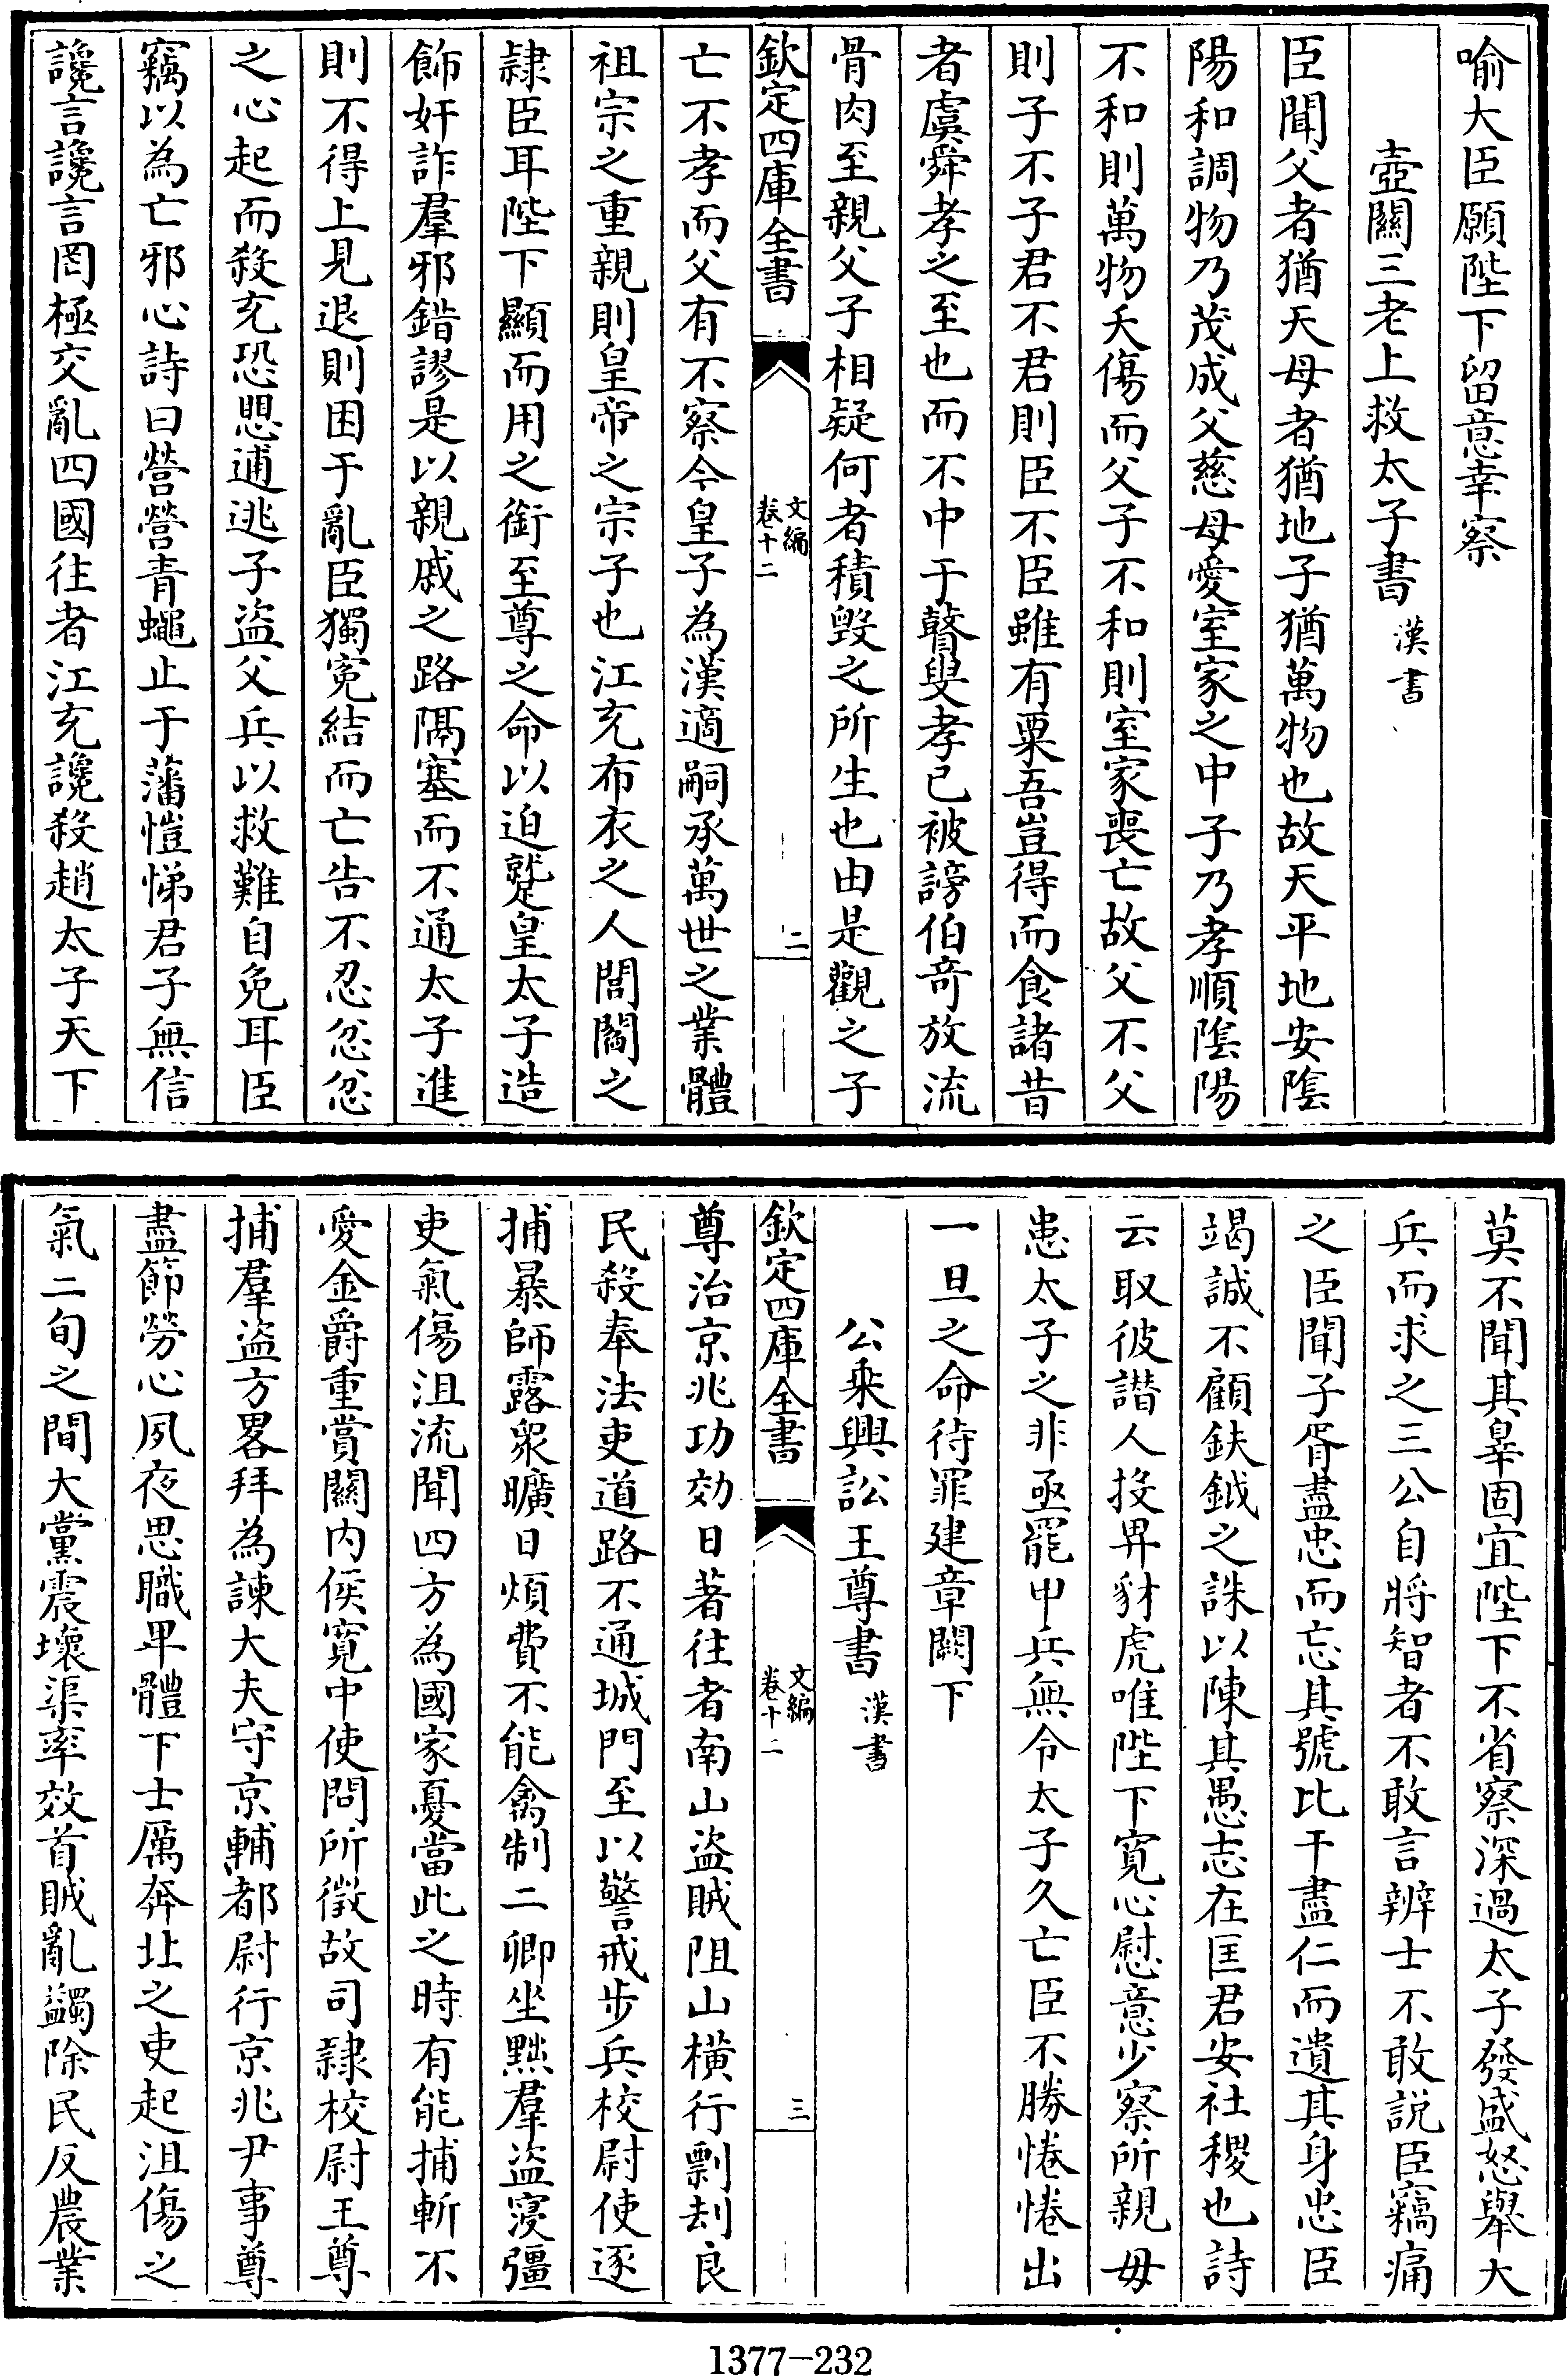 喻大臣願陛下留意幸察
壺關三老上救太子書 漢書
臣聞父者猶天母者猶地子猶萬物也故天平地安隂
陽和調物乃茂成父慈母愛室家之中子乃孝順隂陽
不和則萬物夭傷而父子不和則室家喪亡故父不父
則子不子君不君則臣不臣雖有粟吾豈得而食諸昔
者虞舜孝之至也而不中于瞽叟孝已被謗伯竒放流
骨肉至親父子相疑何者積毁之所生也由是觀之子
欽定四庫全書 文編 卷十二 二
亡不孝而父有不察今皇子為漢適嗣承萬世之業體
祖宗之重親則皇帝之宗子也江充布衣之人閭閻之
隷臣耳陛下顯而用之銜至尊之命以迫蹵皇太子造
飾奸詐羣邪錯謬是以親戚之路隔塞而不通太子進
則不得上見退則困于亂臣獨寃結而亡告不忍忿忿
之心起而殺充恐懼逋逃子盜父兵以救難自免耳臣
竊以為亡邪心詩曰營營青蠅止于藩愷悌君子無信
讒言讒言罔極交亂四國往者江充讒殺趙太子天下
莫不聞其辠固宜陛下不省察深過太子發盛怒舉大
兵而求之三公自將智者不敢言辨士不敢説臣竊痛
之臣聞子胥盡忠而忘其號比干盡仁而遺其身忠臣
竭誠不顧鈇鉞之誅以陳其愚志在匡君安社稷也詩
云取彼譖人投畀豺虎唯陛下寛心慰意少察所親毋
患太子之非亟罷甲兵無令太子久亡臣不勝惓惓出
一旦之命待罪建章闕下
公乘興訟王尊書 漢書
欽定四庫全書 文編 卷十二 三
尊治京兆功効日著往者南山盜賊阻山橫行剽刦良
民殺奉法吏道路不通城門至以警戒步兵校尉使逐
捕暴師露衆曠日煩費不能禽制二卿坐黜羣盜寖彊
吏氣傷沮流聞四方為國家憂當此之時有能捕斬不
愛金爵重賞關内侯寛中使問所徵故司隷校尉王尊
捕羣盜方畧拜為諫大夫守京輔都尉行京兆尹事尊
盡節勞心夙夜思職卑體下士厲奔北之吏起沮傷之
氣二旬之間大黨震壞渠率效首賊亂蠲除民反農業
1377-232